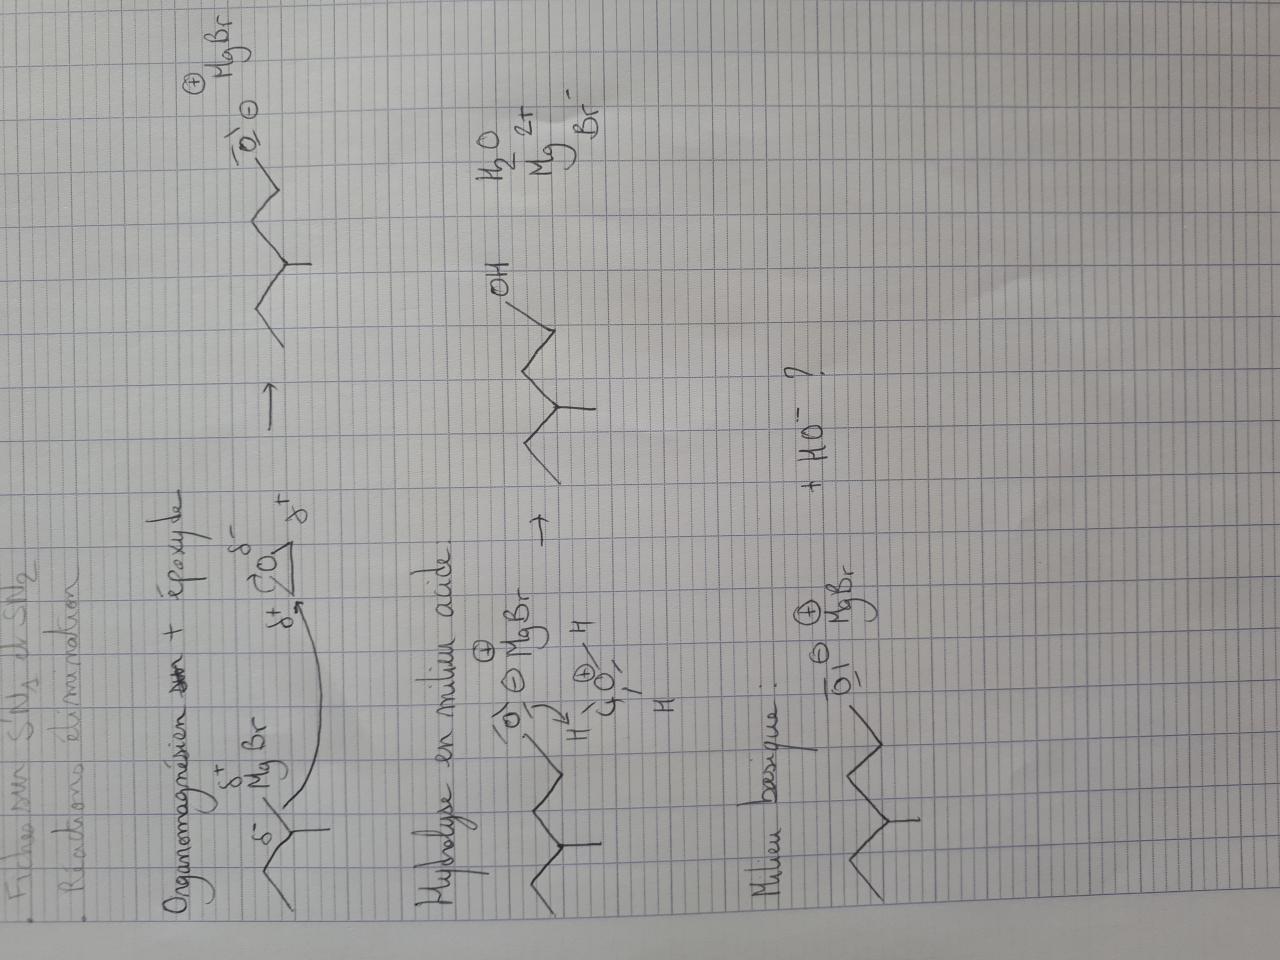 . Fiches sur SN1 et SN2
. Réactions élimination
Organomagnésien + époxyde
δ- δ+ MgBr
δ+ O δ- δ+
→
O ⊖ ⊕ MgBr
Hydrolyse en milieu acide :
O ⊖ ⊕ MgBr
H O ⊕ H
H
→
OH
H2O
Mg 2+
Br -
Milieu basique :
O ⊖ ⊕ MgBr
+ HO- ?